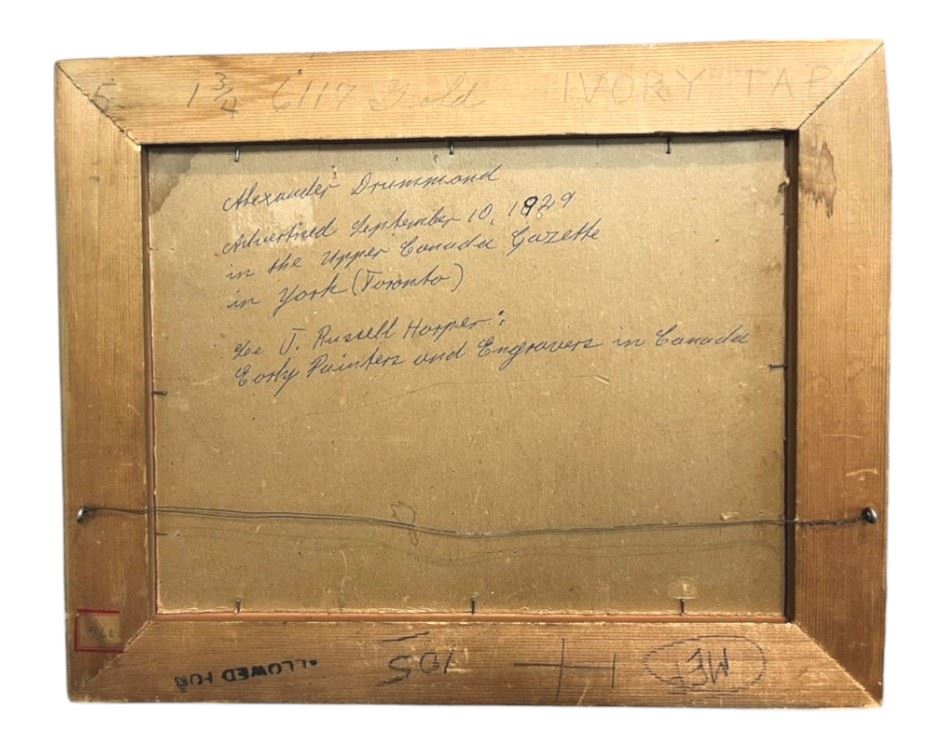 5 1 3/4 6117 Gold IVORY TAP
Alexander Drummond
Advertised September 10, 1929
in the Upper Canada Gazette
in York (Toronto)
See J. Russell Harper:
Early Painters and Engravers in Canada
ALLOWED FOR
105